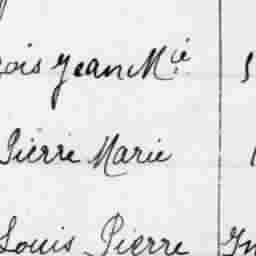 Jean M.ie
Pierre Marie
Louis Pierre